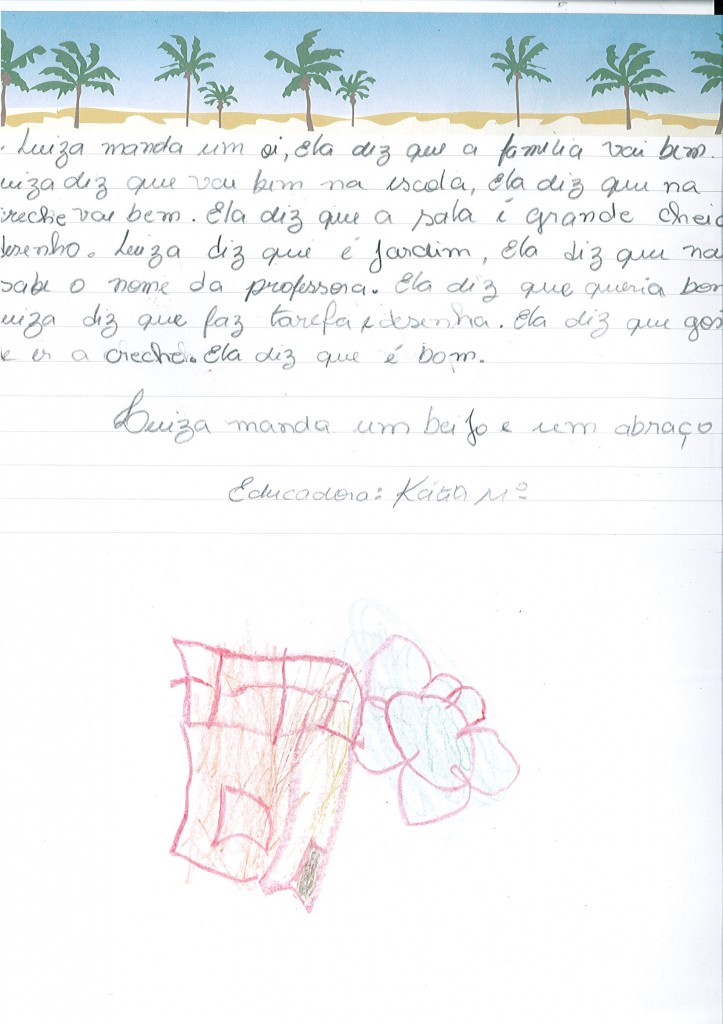 . Luiza manda um oi, Ela diz que a família vai bem.
uiza diz que vai bem na escola, Ela diz que na
reche vai bem. Ela diz que a sala é grande cheia
esenho. Luiza diz que é Jardim, Ela diz que na
sabe o nome da professora. Ela diz que queria bon
uiza diz que faz tarefa e desenha. Ela diz que gos
e ir a creche. Ela diz que é bom.
Luiza manda um beijo e um abraço
Educadora: Kátia Mª